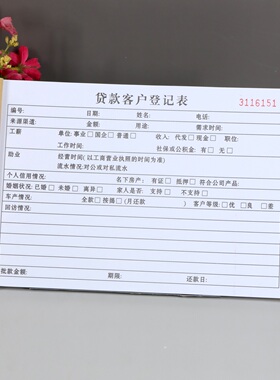 贷款客户登记表 3116151
编号: 日期: 姓名: 电话:
来源渠道: 金额: 用途: 需求时间:
工薪 单位:事业□ 国企□ 普通□ 收入: 代发□ 现金□ 职位:
工作时间: 社保或公积金: 有□ 元 无□
助业 经营时间(以工商营业执照的时间为准)
流水情况:对公或对私流水
个人信用情况: 名下房产: 有证□ 抵押□ 符合公司产品:
婚姻状况:已婚□ 未婚□ 离异□ 家人是否: 支持□ 不支持□
车产情况: 全款□ 按揭□ (月还款 ) 客户等级:优□ 良□ 差□
回访情况:
批款金额: 期限: 还款日: